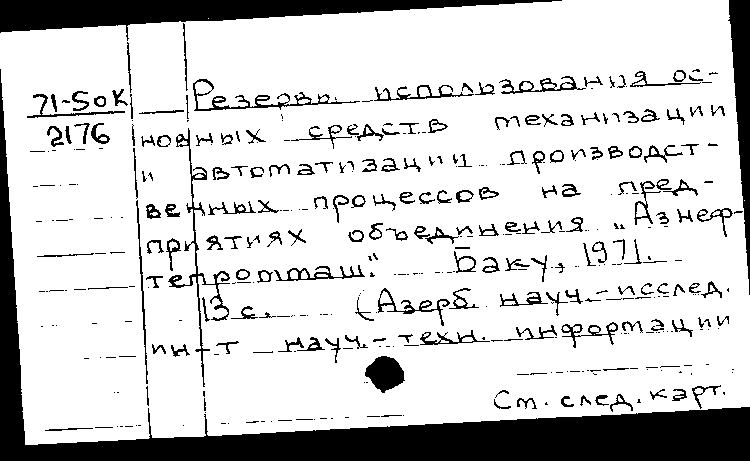 71-5ок Резервы использования ос-
2176 новных средств механизации
и автоматизации производст-
венных процессов на пред-
приятиях объединения „Азнеф-
тепроммаш". Баку, 1971.
13 с. (Азерб. науч.-исслед.
ин-т науч.-техн. информации
См. след. карт.